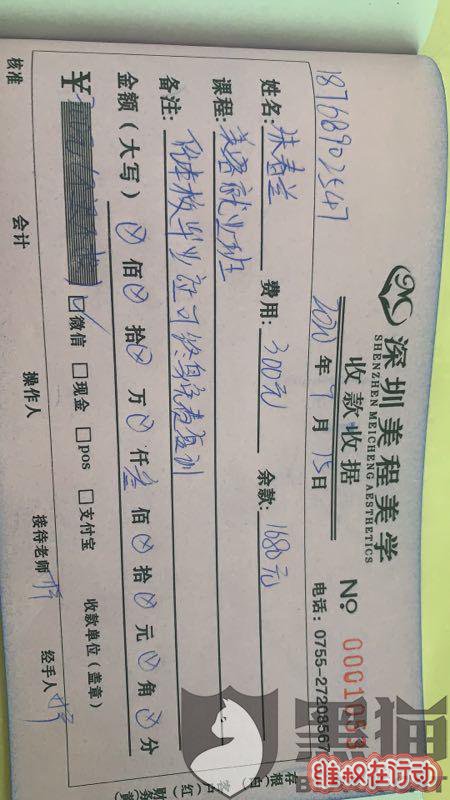 深圳美程美学
SHENZHEN MEICHENG AESTHETICS
收款收据
№ 0001053
18768902547
2020年9月15日
电话：0755-27208567
姓名：朱春兰 费用：300元 余款：1680元
课程：美容就业班
备注：凭本校毕业证可终身免费复训
金额（大写）⊗佰⊗拾⊗万⊗仟叁佰⊗拾⊗元⊗角⊗分
￥ ☑微信 □现金 □pos □支付宝 收款单位（盖章）
核准 会计 操作人 接待老师 经手人
黑猫
维权在行动